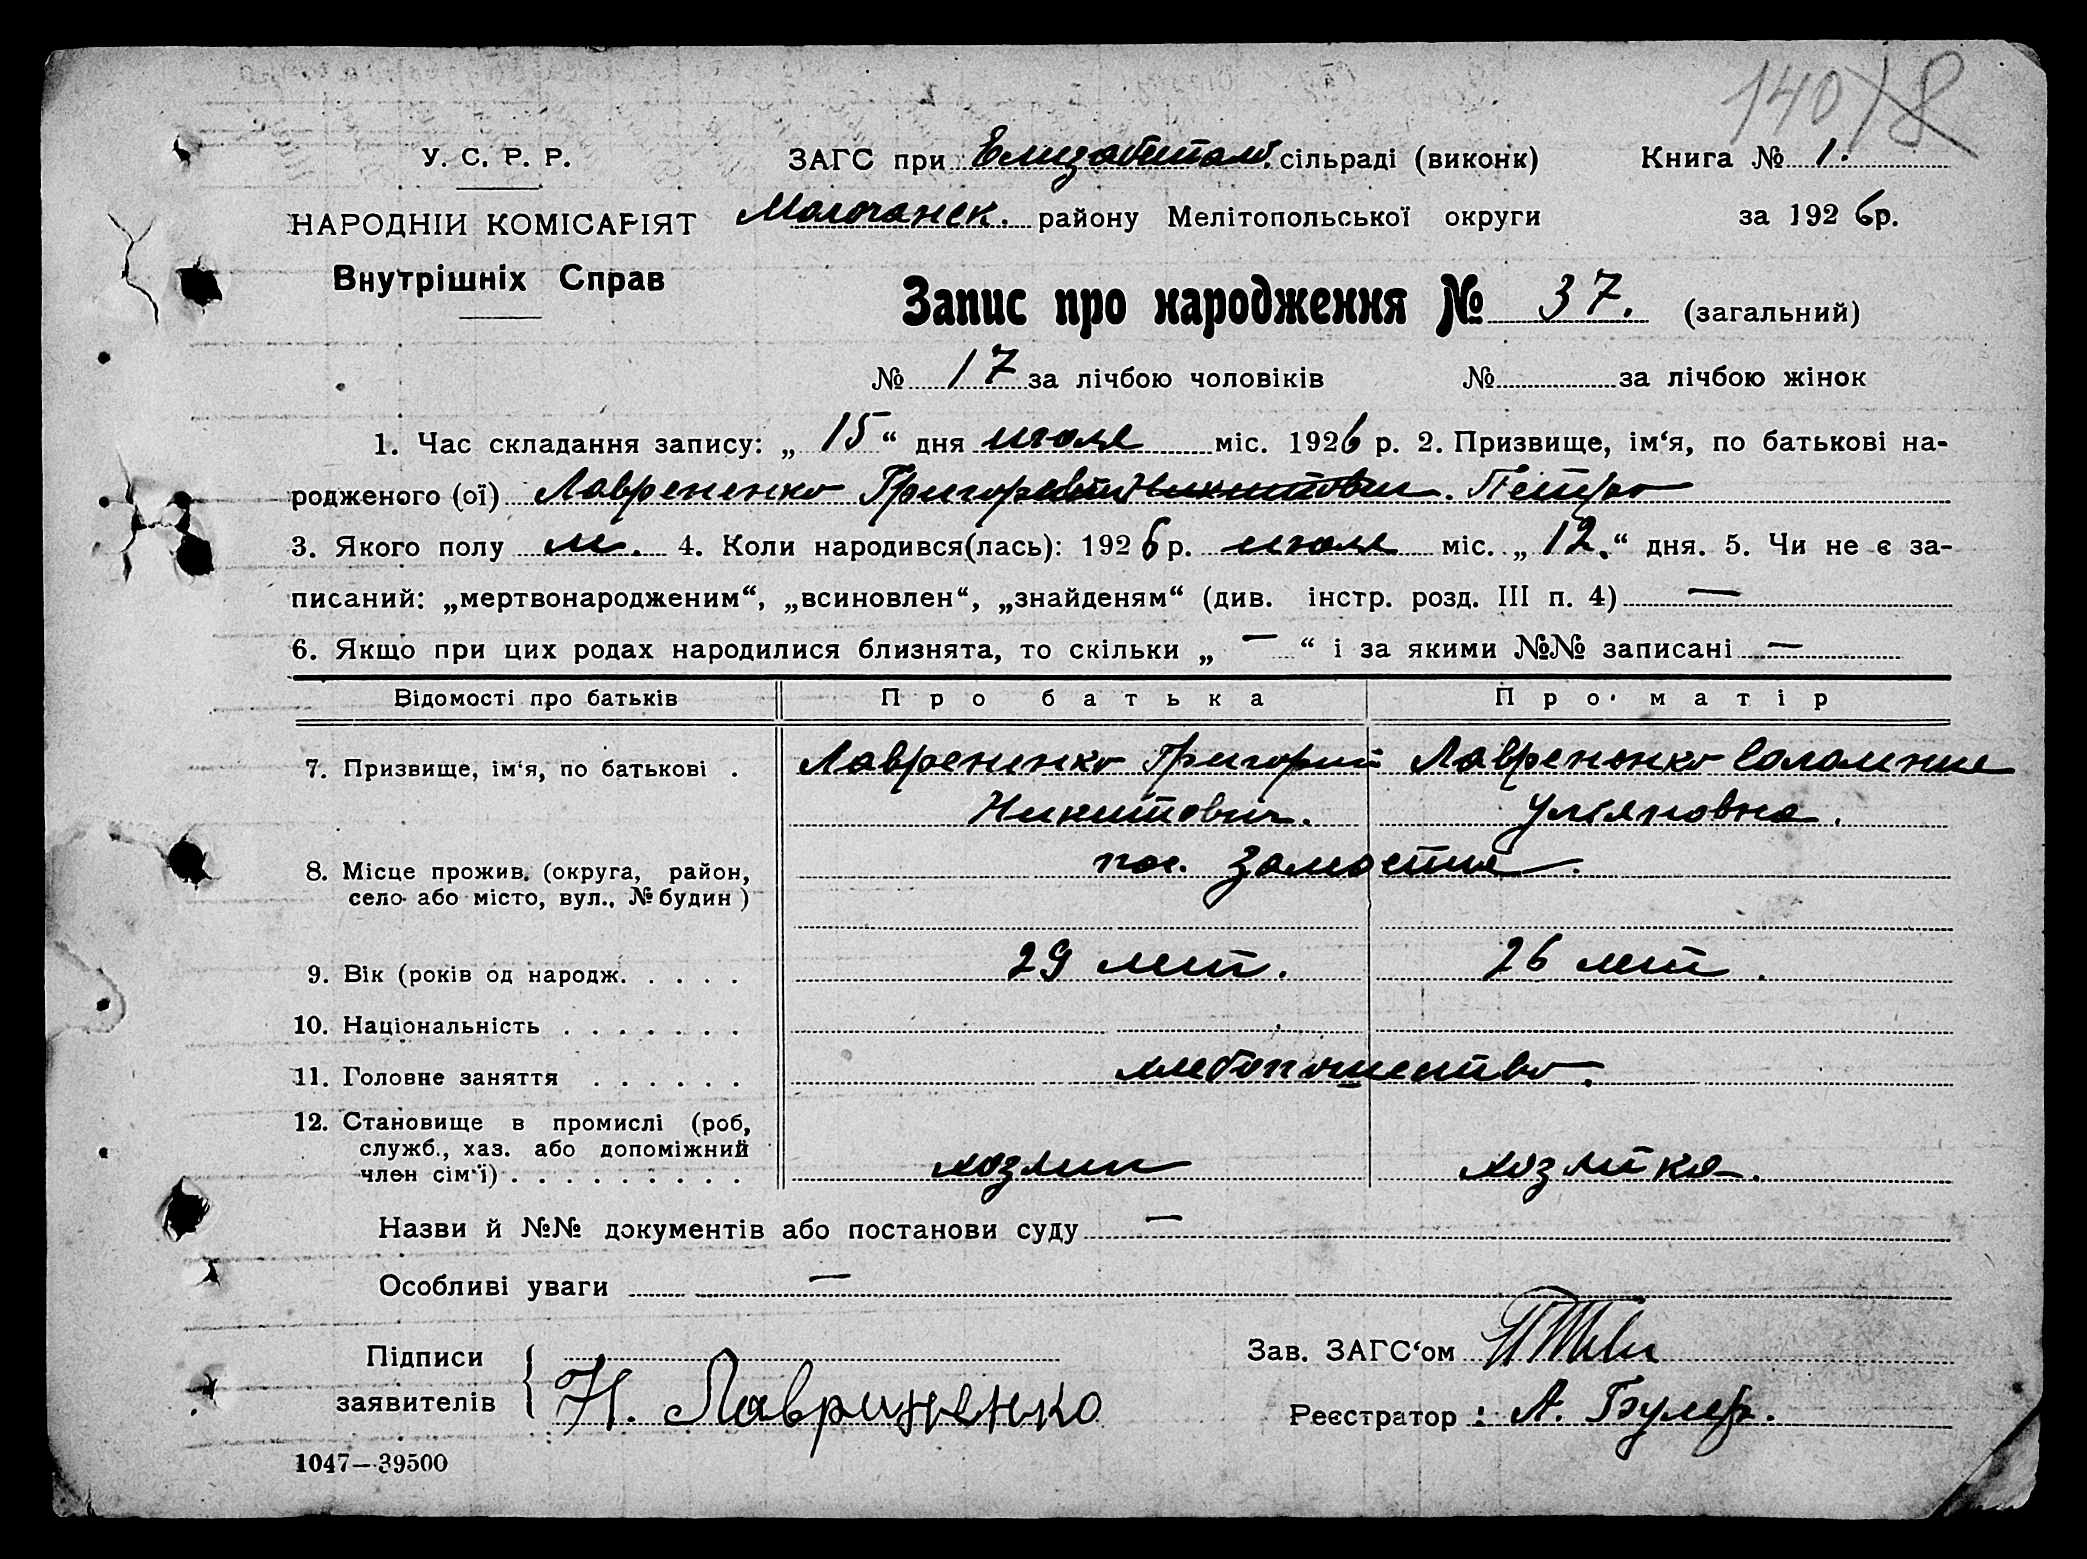 140 78
У. С. Р. Р. ЗАГС при Елизабетал. сільраді (виконк) Книга № 1.
НАРОДНІЙ КОМІСАРІЯТ Молочанск. району Мелітопольської округи за 1926р.
Внутрішніх Справ
Запис про народження № 37. (загальний)
№ 17 за лічбою чоловіків № за лічбою жінок
1. Час складання запису: „ 15 “ дня июля міс. 1926 р. 2. Призвище, ім‘я, по батькові на-
родженого (ої) Лаврененко Григорий Никитович. Петро
3. Якого полу м. 4. Коли народився(лась): 1926 р. июля міс. „ 12. “ дня. 5. Чи не є за-
писаний: „мертвонародженим“, „всиновлен“, „знайденям“ (див. інстр. розд. III п. 4) —
6. Якщо при цих родах народилися близнята, то скільки „ — “ і за якими №№ записані —
Відомості про батьків Про батька Про матір
7. Призвище, ім‘я, по батькові . Лаврененко Григорий Лаврененко Соломния
Никитович. Улияновна.
8. Місце прожив. (округа, район, пос. Замостия.
село або місто, вул., № будин )
9. Вік (років од народж. . . . . 29 лет. 26 лет.
10. Національність . . . . . . .
11. Головне заняття . . . . . . хлебопашество.
12. Становище в промислі (роб,
служб., хаз. або допоміжний
член сім‘ї) . . . . . . . . . хозяин хозяйка.
Назви й №№ документів або постанови суду —
Особливі уваги —
Підписи Зав. ЗАГС‘ом
заявителів Н. Лавриненко Реєстратор : А. Булер.
1047—39500